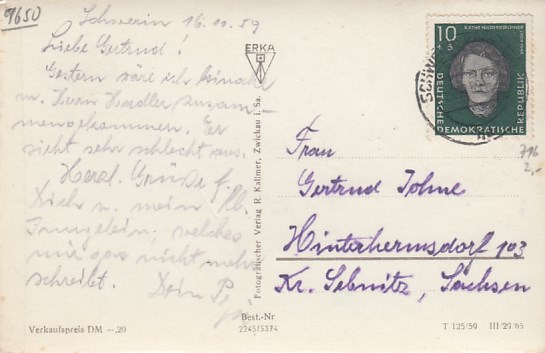 9650
Schwerin 16.10.59
Liebe Gertrud!
Gestern wäre ich beinahe
m. Herrn Haedler zusam-
mengekommen. Er
sieht sehr schlecht aus.
Herzl. Grüße f.
Dich u. mein Kl.
welches
mir gar nicht mehr
schreibt. Dein
ERKA
Fotografischer Verlag R. Kallmer, Zwickau i. Sa.
10
+5
KÄTHE NIEDERKIRCHNER
DEUTSCHE
DEMOKRATISCHE
REPUBLIK
SCHWE
716
2,-
Frau
Gertrud Johne
Hinterhermsdorf 103
Kr. Sebnitz, Sachsen
Verkaufspreis DM —,20
Best.-Nr
2245/5374
T 125/59 III/29/65